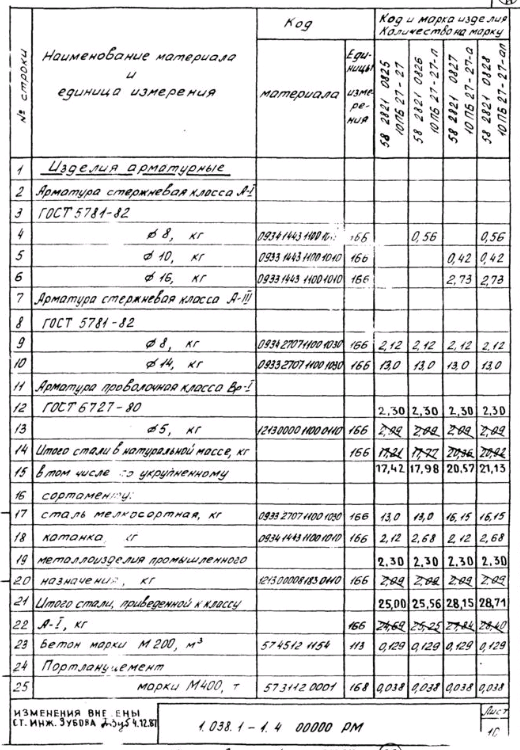 № строки
Наименование материала
и
единица измерения
Код
материала
Единицы измерения
Код и марка изделия
Количество на марку
58 2821 0825
10ПБ 27-27
58 2821 0826
10ПБ 27-27-п
58 2821 0827
10ПБ 27-27-а
58 2821 0828
10ПБ 27-27-ап
1 Изделия арматурные
2 Арматура стержневая класса А-I
3 ГОСТ 5781-82
4 ø 8, кг 166 0,56 0,56
5 ø 10, кг 0933 1443 1100 1010 166 0,42 0,42
6 ø 16, кг 0933 1443 1100 1010 166 2,73 2,73
7 Арматура стержневая класса А-III
8 ГОСТ 5781-82
9 ø 8, кг 0934 2707 1100 1030 166 2,12 2,12 2,12 2,12
10 ø 14, кг 0933 2707 1100 1030 166 13,0 13,0 13,0 13,0
11 Арматура проволочная класса Вр-I
12 ГОСТ 6727-80 2,30 2,30 2,30 2,30
13 ø 5, кг 166 2,09 2,09 2,09 2,09
14 Итого стали в натуральной массе, кг 166 17,21 17,77 20,36 20,92
15 в том числе по укрупненному 17,42 17,98 20,57 21,13
16 сортаменту:
17 сталь мелкосортная, кг 0933 2707 1100 1030 166 13,0 13,0 16,15 16,15
18 катанка, кг 0934 1443 1100 1010 166 2,12 2,68 2,12 2,68
19 металлоизделия промышленного 2,30 2,30 2,30 2,30
20 назначения, кг 166 2,09 2,09 2,09 2,09
21 Итого стали, приведенной к классу 25,00 25,56 28,15 28,71
22 А-I, кг 166 24,69 25,25 27,84 28,40
23 Бетон марки М200, м³ 574512 1154 113 0,129 0,129 0,129 0,129
24 Портландцемент
25 марки М400, т 573112 0001 168 0,038 0,038 0,038 0,038
ИЗМЕНЕНИЯ ВНЕСЕНЫ
СТ. ИНЖ. ЗУБОВА 4.12.87
1.038.1-1.4 00000 РМ
Лист